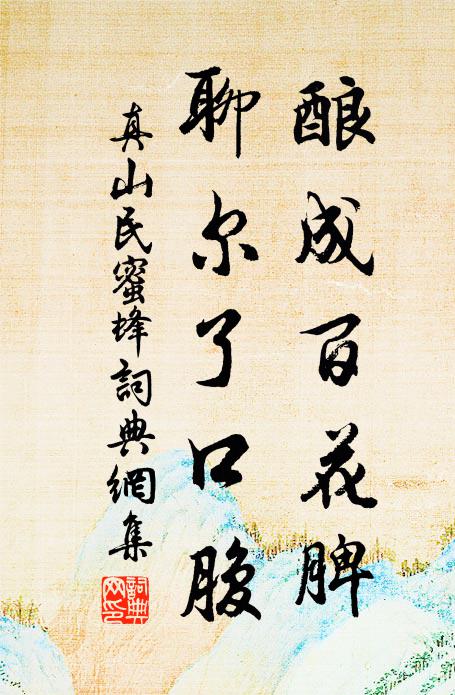 酿成百花脾
聊尔了口腹
真山民蜜蜂詞典網集